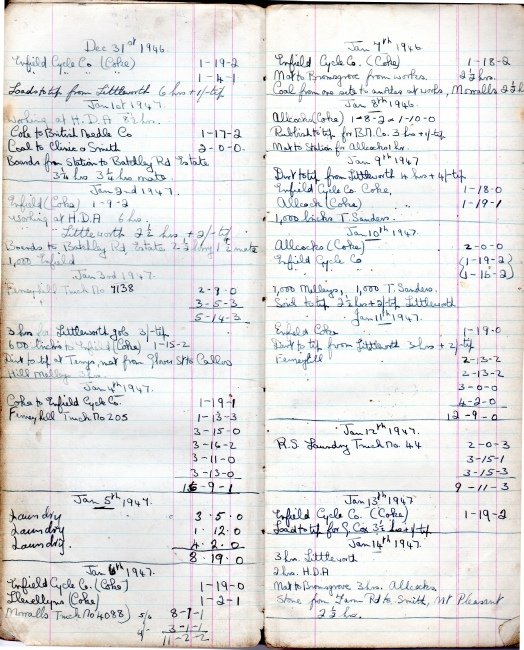 Dec 31st 1946.
Enfield Cycle Co (Coke) 1-19-2
" " " 1-4-1
Loads to tip from Littleworth 6 hrs + 1/- tip
Jan 1st 1947.
Working at H.D.A 8½ hrs.
Coke to British Needle Co 1-17-2
Coal to Clinic o Smith 2-0-0.
Boards from Station to Batchley Rd Estate
3½ hrs 3½ hrs mate.
Jan 2nd 1947.
Enfield (Coke) 1-9-2
Working at H.D.A 6 hrs.
Littleworth 2½ hrs + 2/- tip
Boards to Batchley Rd Estate 2½ lorry 1½ mate
1,000 Enfield
Jan 3rd 1947.
Ferneyhill Truck No 7138 2-9-0
" 3-5-3
5-14-3
3 hrs for Littleworth 3/- tip
600 bricks to Enfield (Coke) 1-15-2
Dirt to tip at Terrys, mat from Glover St to Callows
Hill
Jan 4th 1947.
Coke to Enfield Cycle Co. 1-19-1
Ferneyhill Truck No 205 1-13-3
3-15-0
3-16-2
3-11-0
3-13-0
15-9-1
Jan 5th 1947.
Laundry 3.5.0
Laundry 1.12.0
Laundry. 4.2.0
8.19.0
Jan 6th 1947.
Enfield Cycle Co. (Coke) 1-19-0
Llewellyns (Coke) 1-2-1
Morralls Truck No 4088) 5/6 8-1-1
4/- 3-1-1
11-2-2
Jan 7th 1946.
Enfield Cycle Co. (Coke) 1-18-2
Mat to Bromsgrove from works. 2½ hrs.
Coal from one side to another at works, Morralls 2½ h
Jan 8th 1946.
Allcocks (Coke) 1-8-2 1-10-0
Rubbish to tip for B.N.Co. 3 hrs + 1/- tip
Mat to Station for Allcocks 1 hr.
Jan 9th 1947.
Dirt to tip from Littleworth 4 hrs + 4/- tip
Enfield Cycle Co. Coke, 1-18-0
Allcock (Coke) 1-19-1
1,000 bricks T. Sanders.
Jan 10th 1947.
Allcocks (Coke) 2-0-0
Enfield Cycle Co (1-19-2)
(1-16-2)
1,000 Melleys, 1,000 T. Sanders.
Soil to tip 2½ hrs + 2/- tip Littleworth
Jan 11th 1947.
Enfield Coke 1-19-0
Dirt to tip from Littleworth 3 hrs + 2/- tip
Ferneyhill 2-13-2
2-13-2
3-0-0
4-2-0
12-9-0
Jan 12th 1947.
R.S. Laundry Truck No. 44 2-0-3
3-15-1
3-15-3
9-11-3
Jan 13th 1947
Enfield Cycle Co. (Coke) 1-19-2
Load to tip for G. Cox 3½ hrs + 1/- tip
Jan 14th 1947.
3 hrs. Littleworth
2 hrs. H.D.A
Mat to Bromsgrove 3 hrs. Allcocks.
Stone from Farm Rd to Smith, Mt Pleasant
2½ hrs.